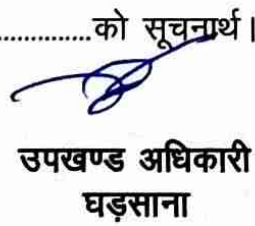 ..............को सूचनार्थ।
उपखण्ड अधिकारी
घड़साना